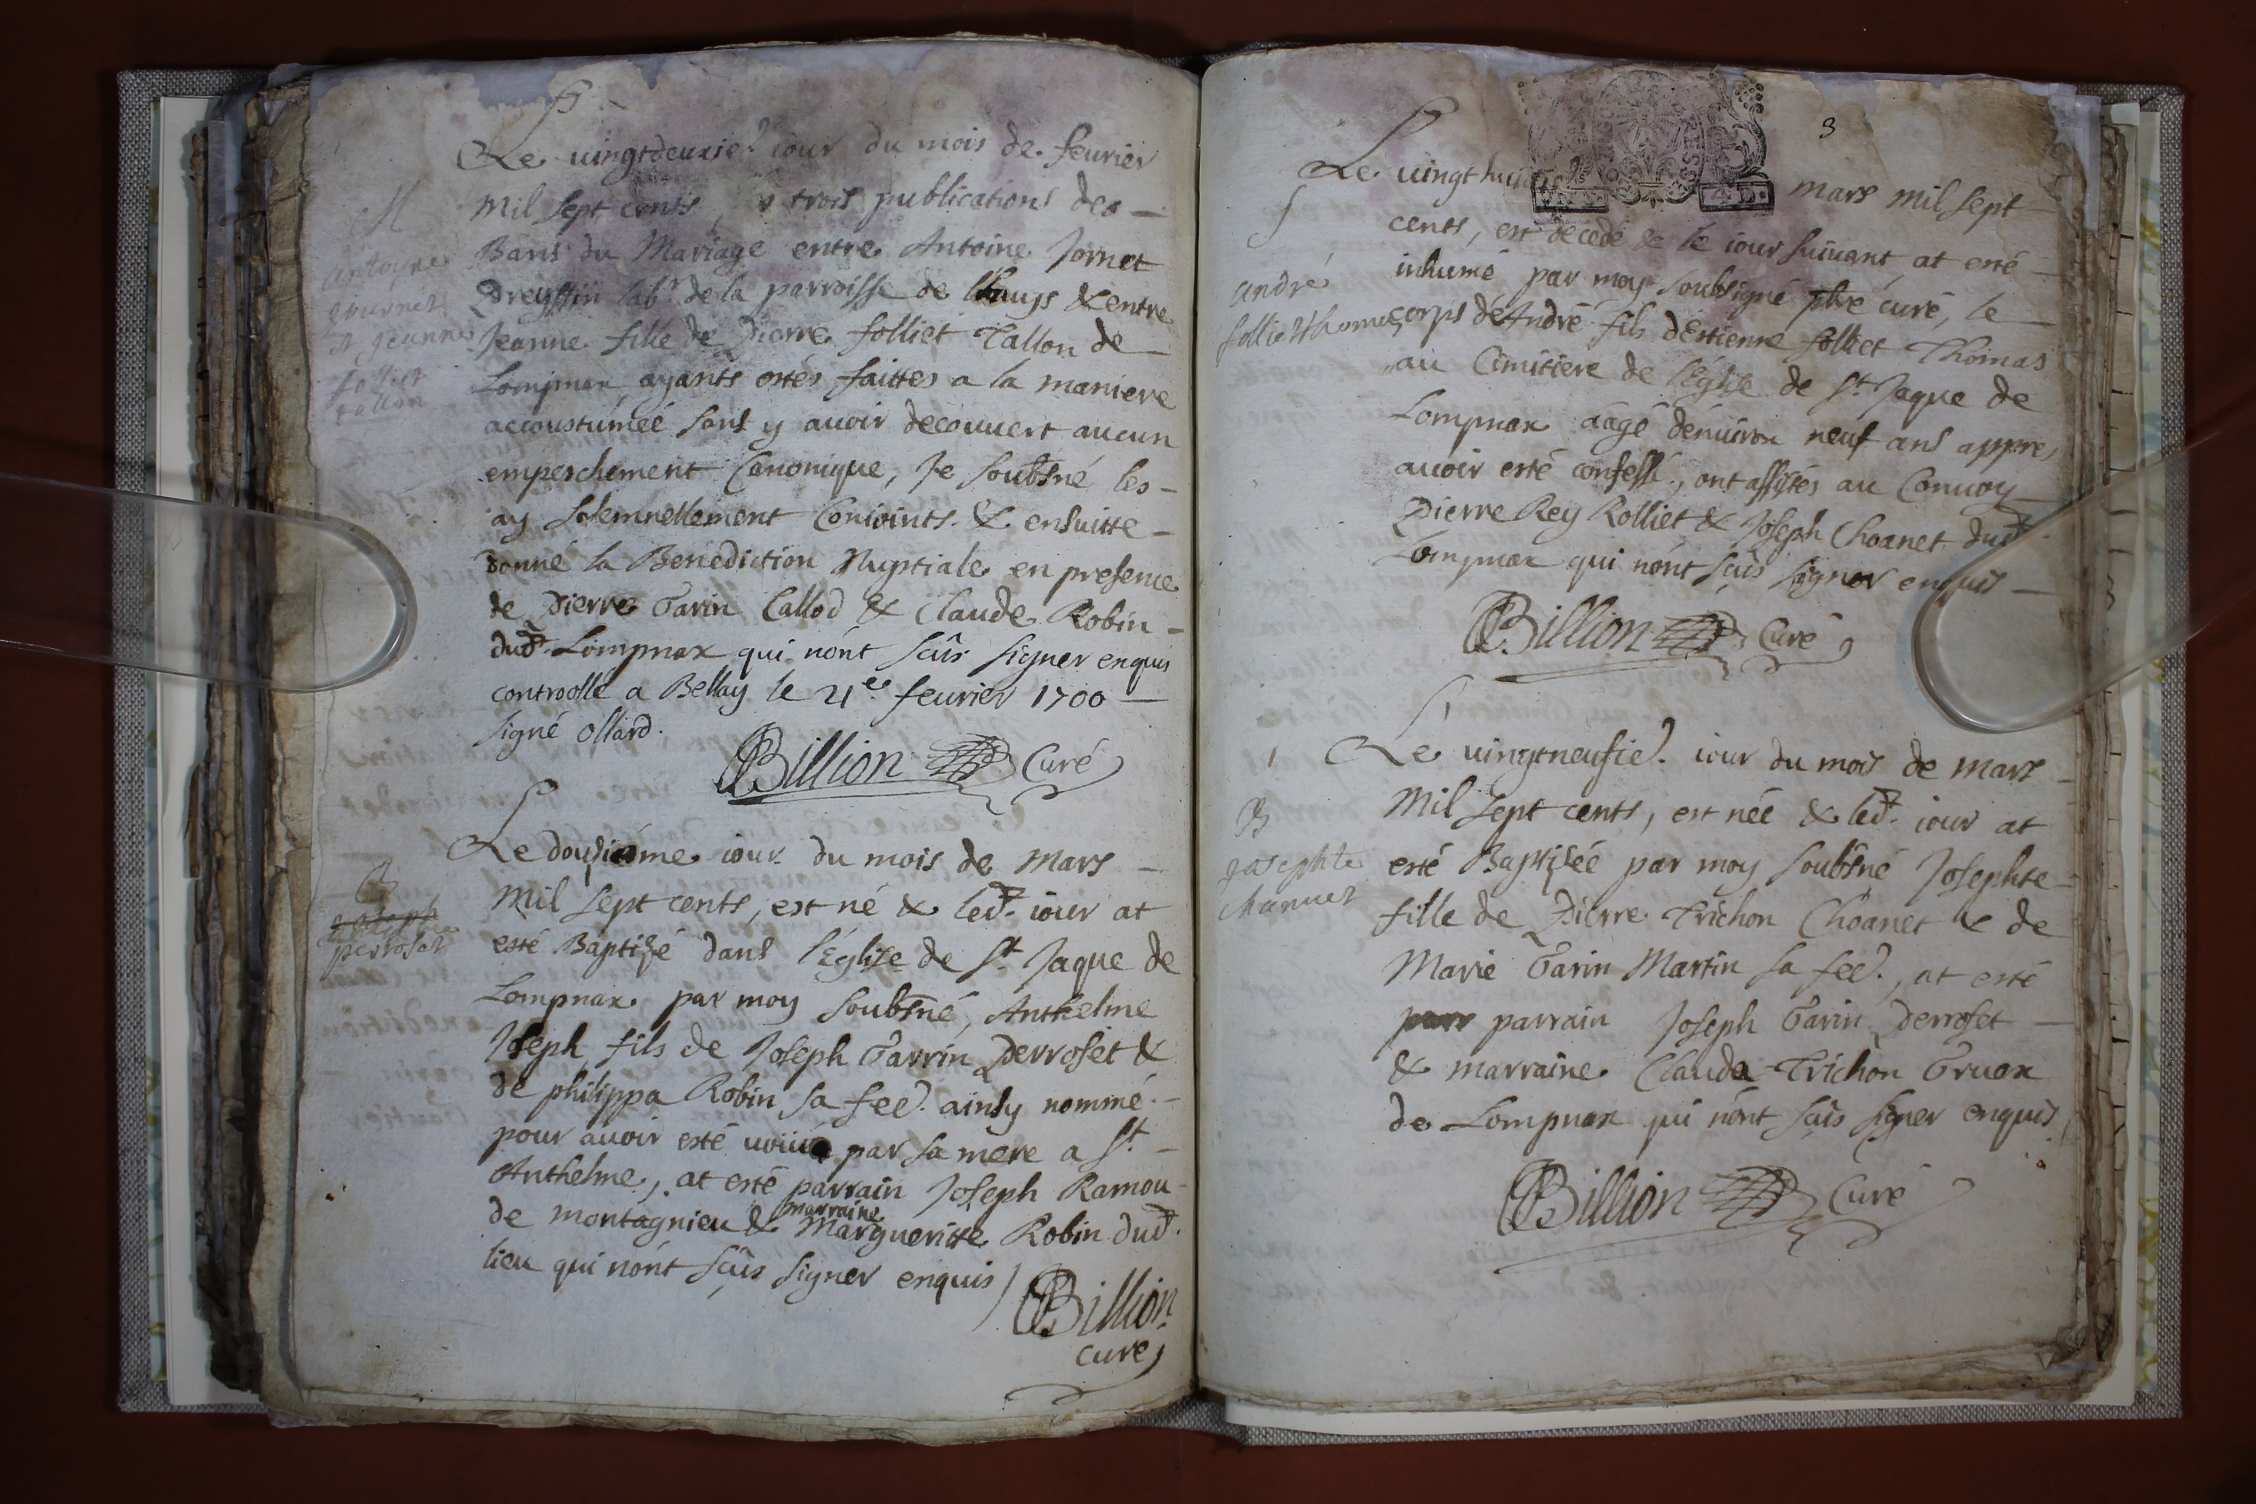 Le vingtdeuxie. iour du mois de feurier
M
Mil sept cents, trois publications des
antoyne
Bans du Mariage entre Antoine Jornet
Dreyffin lab.r de la parroisse de & entre
& jeanne
Jeanne fille de Pierre folliet Tallon de
folliet
tallon
Lompnax ayants estés faittes a la maniere
accoustumée sans y auoir decouuert aucun
empeschement Canonique, Je soubsné les
ay solemnellement Conioints & ensuitte
donné la Benediction Nuptiale en presence
de Pierre Garin Callod & Claude Robin
dud. Lompnax qui nónt sçûs signer enquis
controollé a Bellay le 21e. feurier 1700
signé ollard.
Billion Curé
Le dousiéme iour du mois de Mars
B
Mil sept cents, est né & led. iour at
joseph
perroset
esté Baptizé dans l'Église de St. Jaque de
Lompnax par moy soubsné, Anthelme
Joseph fils de Joseph Garrin Perroset &
de philippa Robin sa fee. ainsy nommé
pour auoir esté par sa mere a St.
Anthelme, at esté parrain Joseph Ramou
marraine
de montagnieu & Margueritte Robin dud.
lieu qui nónt sçûs signer enquis
Billion
curé
3
Le vingt mars mil sept
cents, est decedé & le iour suiuant at esté
andré
inhumé par moy soubsigné pbre curé, le
folliet thomas
corps d'André fils d'Estienne folliet Thomas
au Cimitiere de l'Eglise de St. Jaque de
Lompnax aagé d'enuiron neuf ans appres
auoir esté confessé, ont assistés au Conuoy
Pierre Rey Rolliet & Joseph Choanet dud.
Lompnax qui nónt sçûs signer enquis
Billion Curé
Le vingtneufie. iour du mois de mars
Mil sept cents, est née & led. iour at
B
josephte
chanuet
esté Baptizée par moy soubsné Josephte
fille de Pierre Trichon Choanet & de
Marie Garin Martin sa fee., at esté
parrain Joseph Garin Perroset
& marraine Clauda Trichon Gruox
de Lompnax qui nónt sçûs signer enquis
Billion Curé